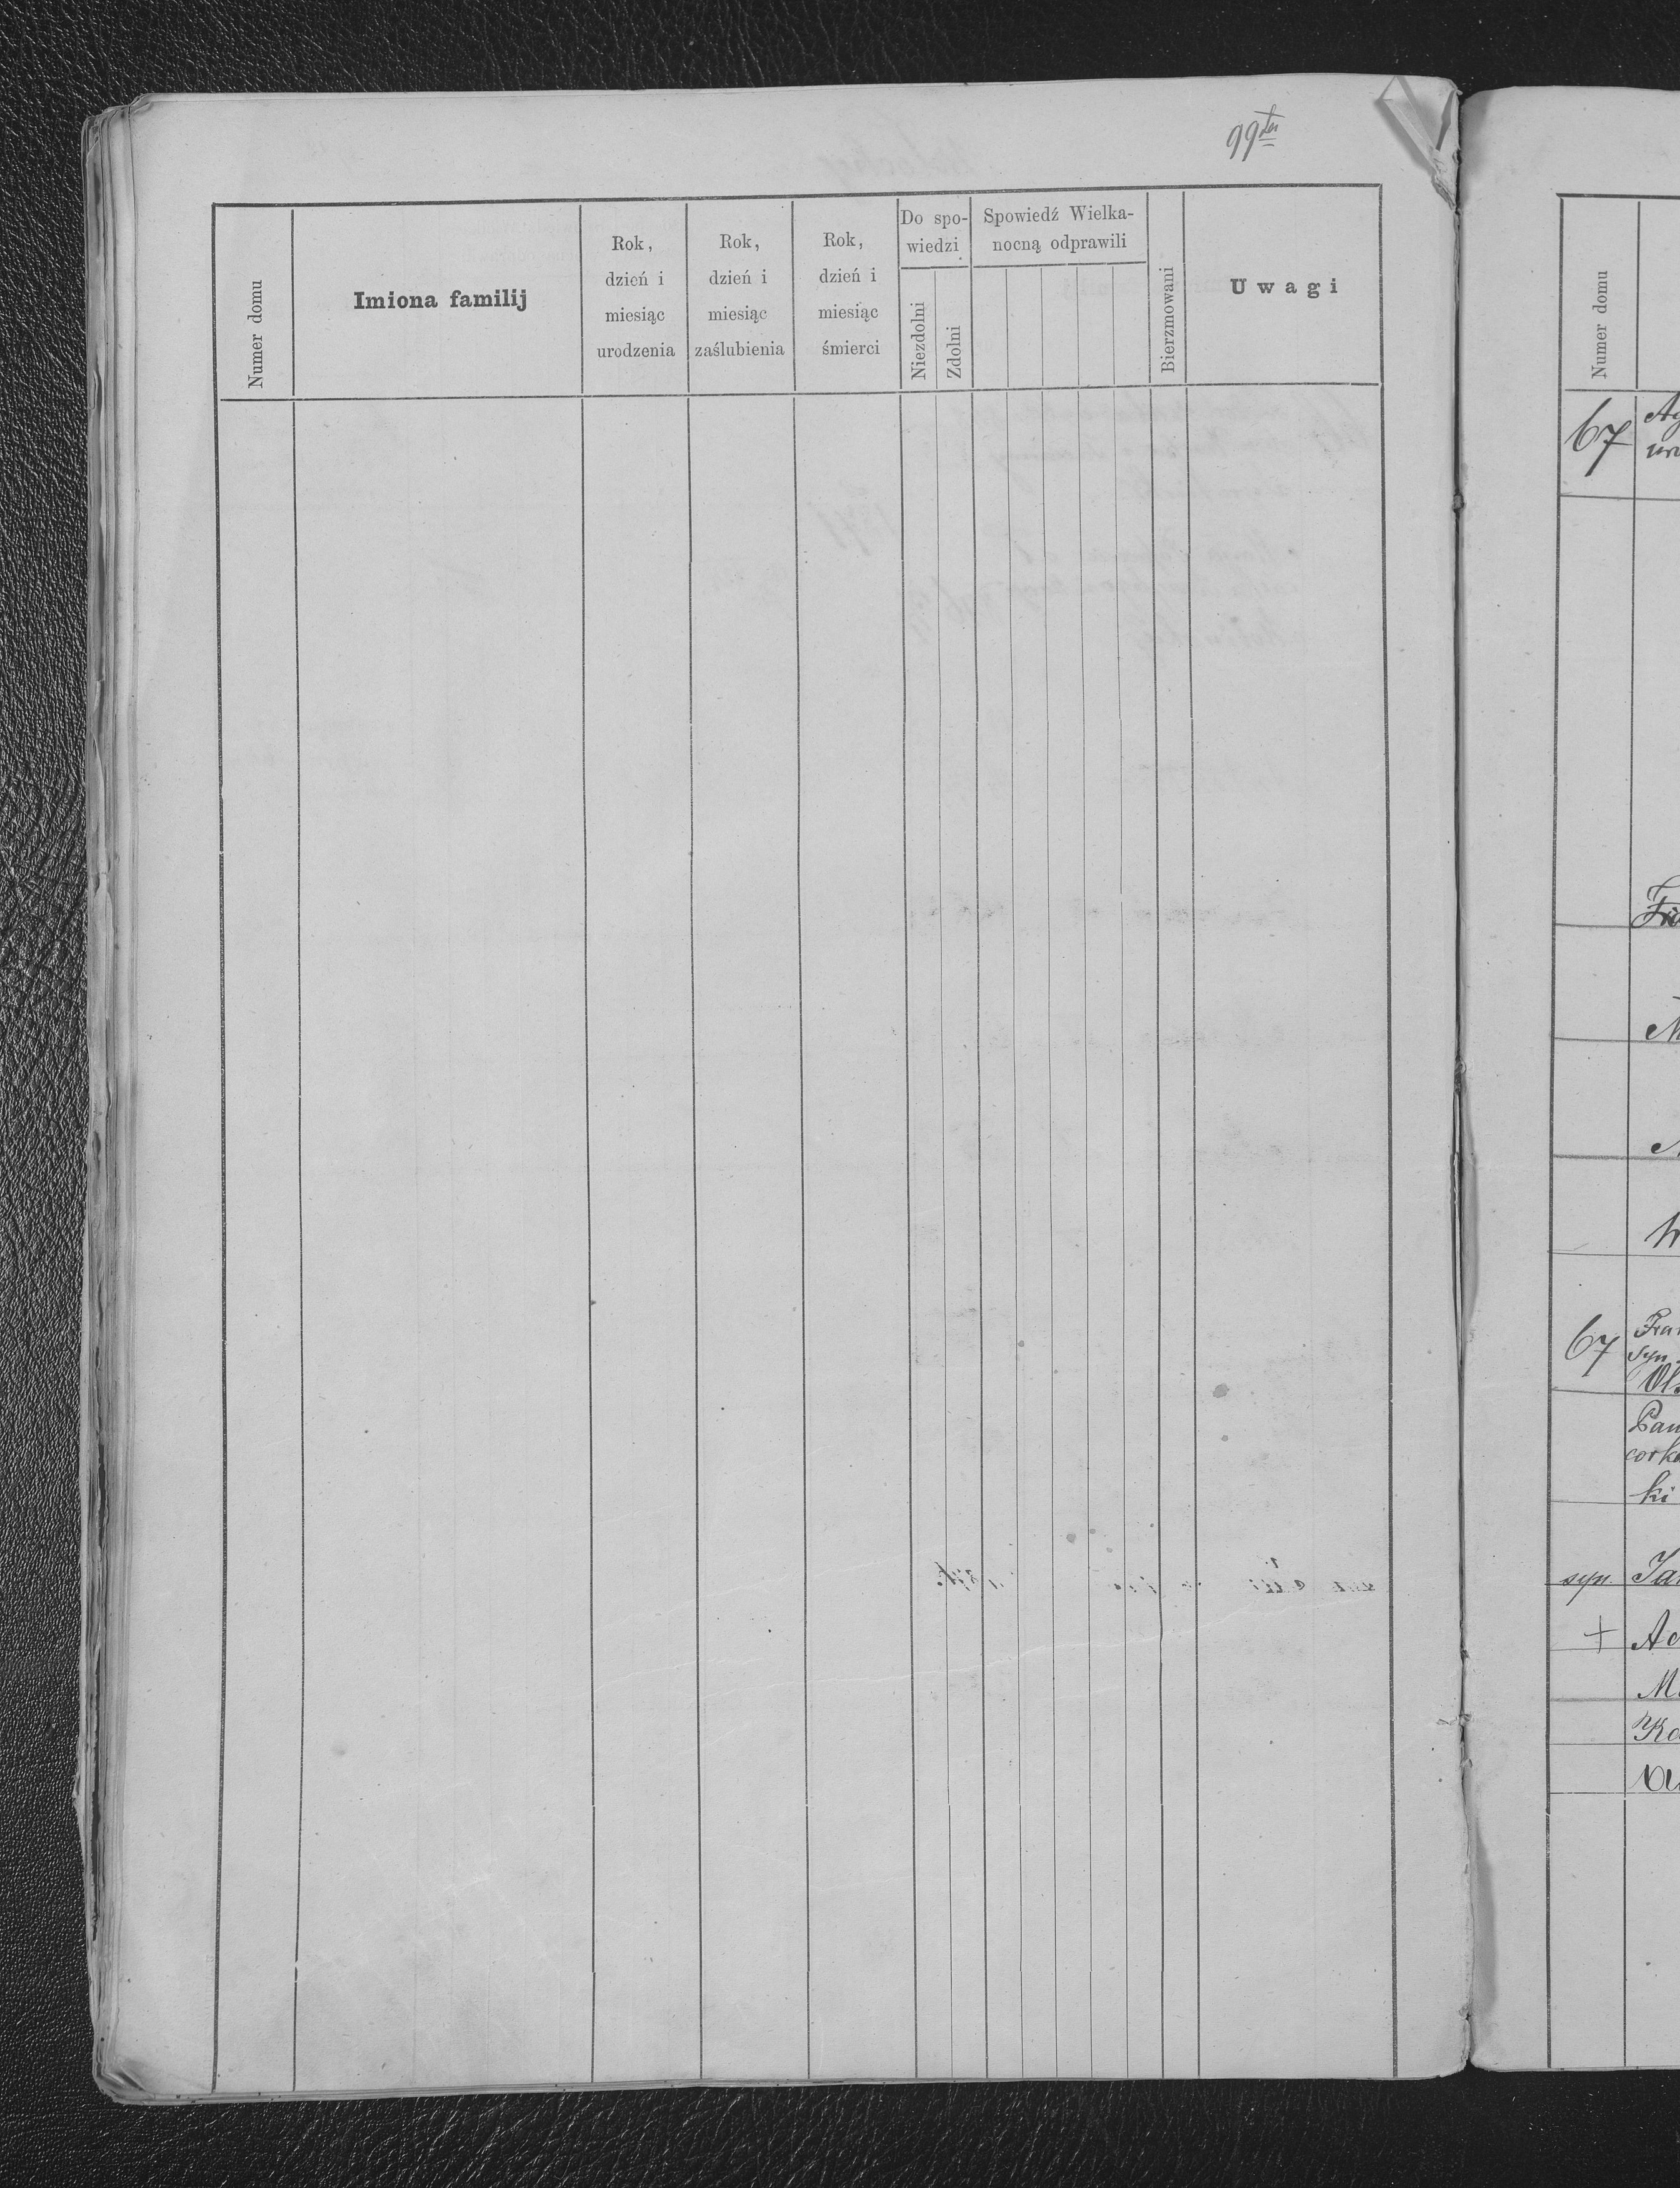 99ter
Numer domu
Imiona familij
Rok,
dzień i
miesiąc
urodzenia
Rok,
dzień i
miesiąc
zaślubienia
Rok,
dzień i
miesiąc
śmierci
Do spo-
wiedzi
Niezdolni
Zdolni
Spowiedź Wielka-
nocną odprawili
Bierzmowani
Uwagi
Numer domu
67
67
Fran
syn
Pan
corka
ki
syn
Jan
+